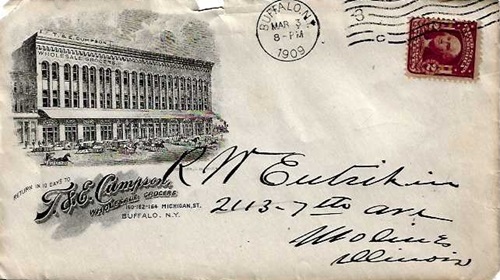 T. & E. CUMPSON
WHOLESALE GROCERS
BUFFALO, N.Y.
MAR 3
8-PM
1909
3
C
RETURN IN 10 DAYS TO
T. & E. Cumpson,
WHOLESALE GROCERS
160-162-164 MICHIGAN, ST.
BUFFALO, N.Y.
R W Entrikin
2113-7th ave
Moline
Illinois